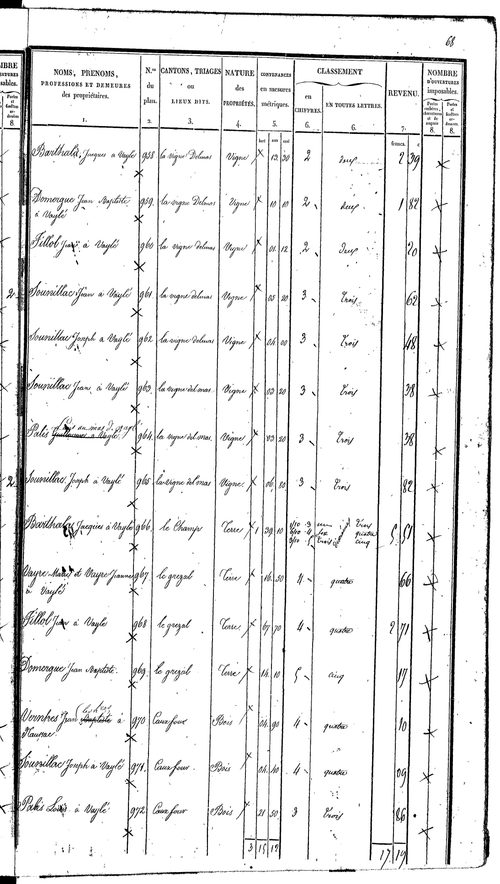 68
NOMS, PRENOMS, PROFESSIONS ET DEMEURES des propriétaires. N.os du plan. CANTONS, TRIAGES ou LIEUX DITS. NATURE des PROPRIÉTÉS. CONTENANCES en mesures métriques. CLASSEMENT en CHIFFRES. EN TOUTES LETTRES. REVENU. NOMBRE D'OUVERTURES imposables.
1. 2. 3. 4. 5. 6. 6. 7. 8. 8.
Barthala, Jacques à Vaylé 958 la vigne Delmas Vigne 13 30 2 deux 2 39
Domergue Jean Baptiste 959 la vigne Delmas Vigne 10 10 2 deux 1 82
à Vaylé
Fillol Jean à Vaylé 960 la vigne delmas Vigne 01 12 2 Deux 20
Sounillac Jean à Vaylé 961 la vigne delmas Vigne 05 20 3 Trois 62
Sounillac Joseph à Vaylé 962 la vigne delmas Vigne 04 00 3 Trois 48
Sounillac Jean à Vaylé 963 la vigne del mas Vigne 03 20 3 Trois 38
Palis Guillaume à Vaylé 964 la vigne del mas Vigne 03 20 3 Trois 38
Sounillac Joseph à Vaylé 965 la vigne del mas Vigne 06 80 3 Trois 82
Barthala Jacques à Vaylé 966 le Champ Terre 1 39 10 5 51
Vayre Marie et Vayre Jeanne 967 le grezal Terre 16 50 4 quatre 66
à Vaylé
Fillol Jean à Vaylé 968 le grezal Terre 67 70 4 quatre 2 71
Domergue Jean Baptiste 969 le grezal Terre 14 10 5 cinq 17
Vernhes Jean Baptiste à 970 Caux four Bois 04 90 4 quatre 10
Naussac
Sounillac Joseph à Vaylé 971 Caux four Bois 04 40 4 quatre 09
Palis Louis à Vaylé 972 Caux four Bois 21 50 3 Trois 86
3 15 12 17 19